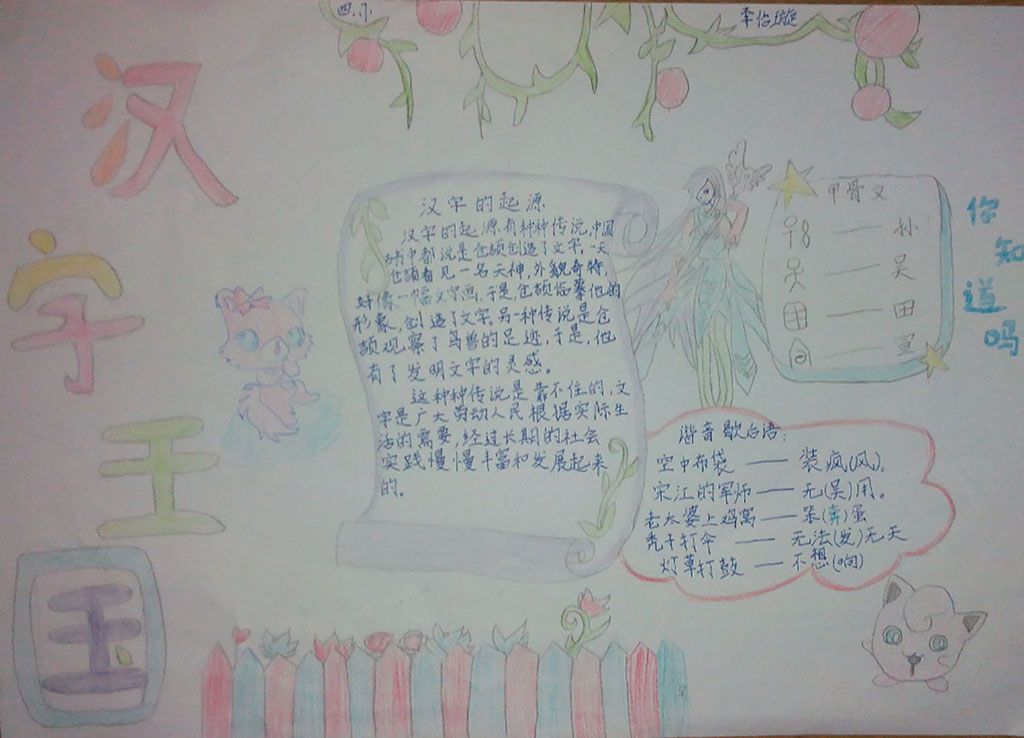 四.小
李怡璇
汉
字
王
国
汉字的起源
汉字的起源有种种传说,中国
中都说是仓颉创造了文字。一天,
仓颉看见一名天神,外貌奇特,
好像一幅文字画,于是,仓颉临摹他的
形象,创造了文字。另一种传说是仓
颉观察了鸟兽的足迹,于是,他
有了发明文字的灵感。
这种种传说是靠不住的,文
字是广大劳动人民根据实际生
活的需要,经过长期的社会
实践慢慢丰富和发展起来
的。
甲骨文
—— 孙
—— 吴
—— 田
—— 宣
你
知
道
吗
谐音歇后语:
空中布袋 —— 装疯(风)。
宋江的军师 —— 无(吴)用。
老太婆上鸡窝 —— 笨(奔)蛋
秃子打伞 —— 无法(发)无天
灯草打鼓 —— 不想(响)